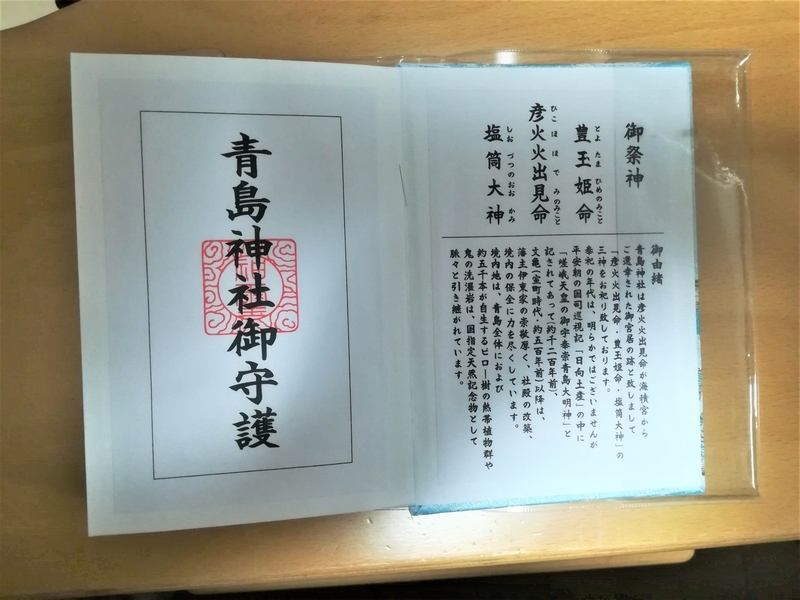 御祭神
豊玉姫命
とよたまひめのみこと
彦火火出見命
ひこほほでみのみこと
塩筒大神
しおづつのおおかみ
御由緒
青島神社は彦火火出見命が海積宮から
ご還幸された御宮居の跡と致しまして
「彦火火出見命・豊玉姫命・塩筒大神」の
三神をお祀り致しております。
奉祀の年代は、明らかではございませんが
平安朝の国司巡視記「日向土産」の中に
「嵯峨天皇の御宇奉崇青島大明神」と
記されてあって(約千二百年前)、
文亀(室町時代・約五百年前)以降は、
藩主伊東家の崇敬厚く、社殿の改築、
境内の保全に力を尽くしています。
境内地は、青島全体におよび
約五千本が自生するビロー樹の熱帯植物群や
鬼の洗濯岩は、国指定天然記念物として
脈々と引き継がれています。
青島神社御守護